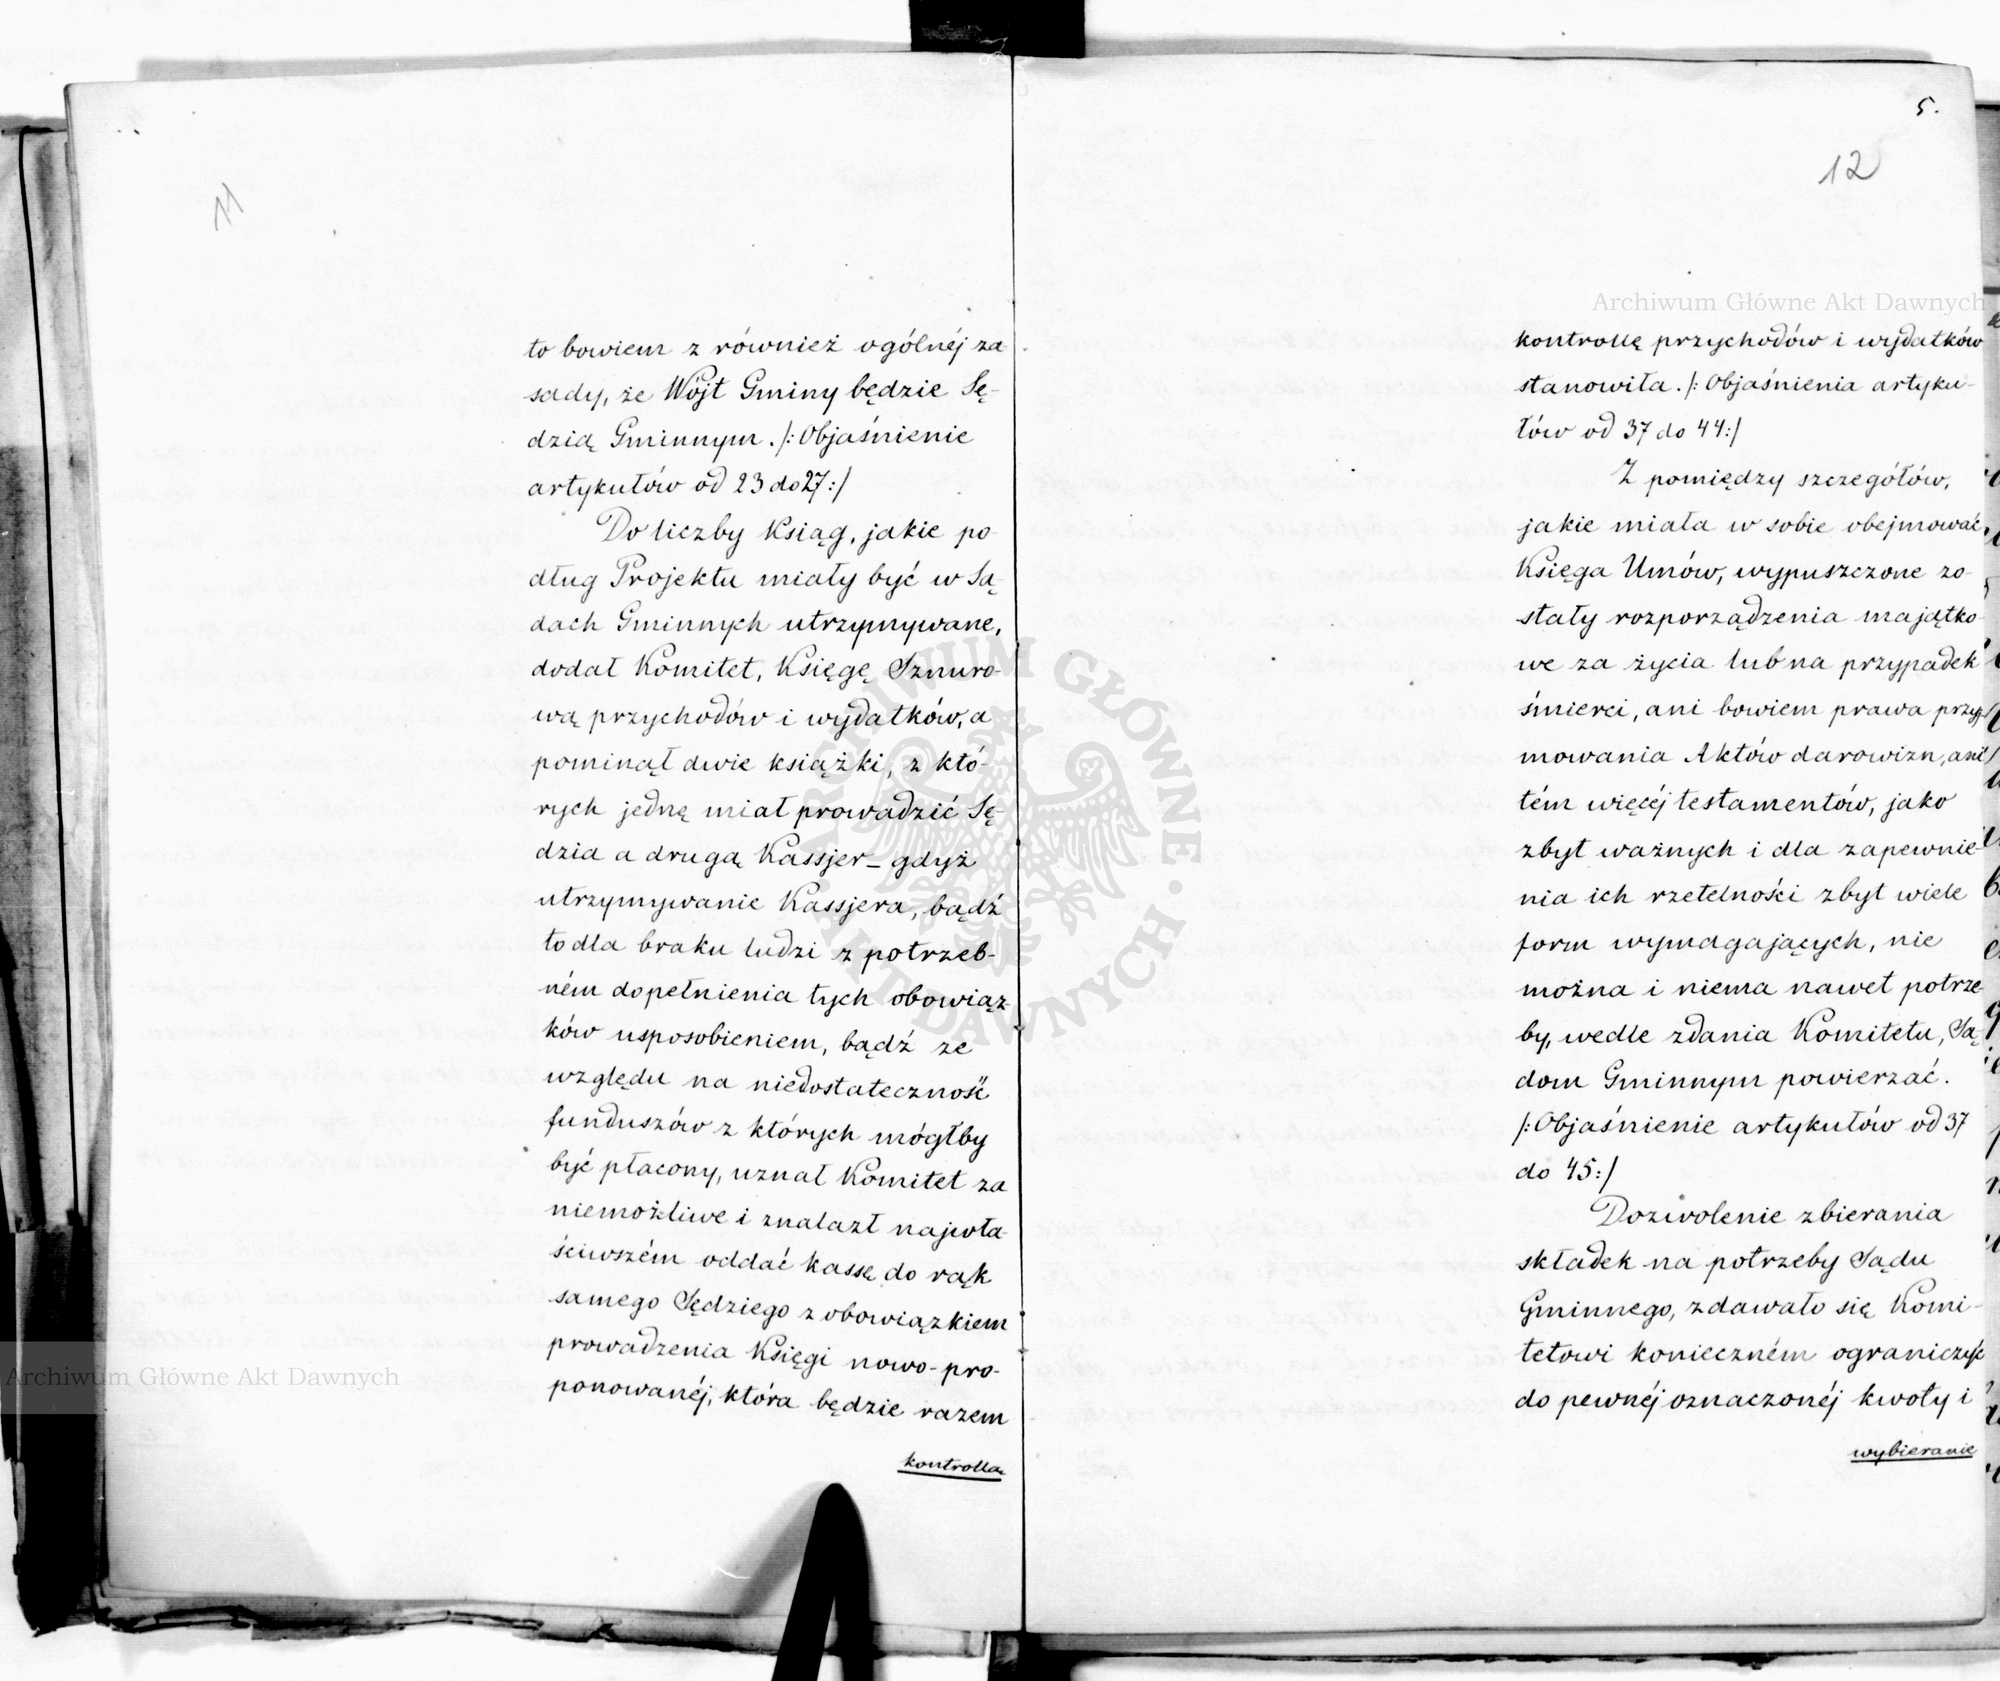 11
to bowiem z również ogólnéj za
sady, że Wójt Gminy będzie Sę-
dzią Gminnym. /: Objaśnienie
artykułów od 23 do 27:/
Do liczby Ksiąg, jakie po-
dług Projektu miały być w Są-
dach Gminnych utrzymywane,
dodał Komitet, Księgę Sznuro-
wą przychodów i wydatków, a
pominął dwie książki, z któ-
rych jednę miał prowadzić Sę-
dzia a drugą Kassjer – gdyż
utrzymywanie Kassjera, bądź
to dla braku ludzi z potrzeb-
ném dopełnienia tych obowiąz-
ków usposobieniem, bądź ze
względu na niedostateczność
funduszów z których mógłby
być płacony, uznał Komitet za
niemożliwe i znalazł najwła-
ściwszém oddać kassę do rąk
samego Sędziego z obowiązkiem
prowadzenia Księgi nowo-pro-
ponowanéj, która będzie razem
kontrollą
5.
12
kontrollę przychodów i wydatków
stanowiła. /: Objaśnienia artyku-
łów od 37 do 44:/
Z pomiędzy szczegółów,
jakie miała w sobie obejmować
Księga Umów, wypuszczone zo-
stały rozporządzenia majątko-
we za życia lub na przypadek
śmierci, ani bowiem prawa przyj-
mowania Aktów darowizn, ani
tém więcéj testamentów, jako
zbyt ważnych i dla zapewnie-
nia ich rzetelności zbyt wiele
form wymagających, nie
można i niema nawet potrze-
by, wedle zdania Komitetu, Są-
dom Gminnym powierzać.
/: Objaśnienie artykułów od 37
do 45:/
Dozwolenie zbierania
składek na potrzeby Sądu
Gminnego, zdawało się Komi-
tetowi konieczném ograniczyć
do pewnéj oznaczonéj kwoty i
wybieranie
Archiwum Główne Akt Dawnych
Archiwum Główne Akt Dawnych
ARCHIWUM GŁÓWNE AKT DAWNYCH